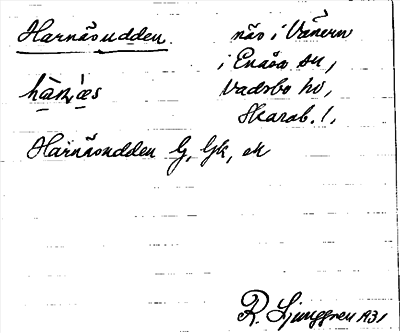 Harnäsudden. näs i Vänern
i Enåsa sn,
Vadsbo hd,
Skarab. l.,
Harnäsudden G, Gk, ek
R. Ljunggren 1931